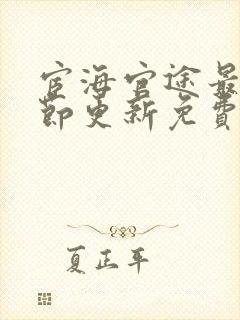 宦海官途最
节更新免费
夏正平